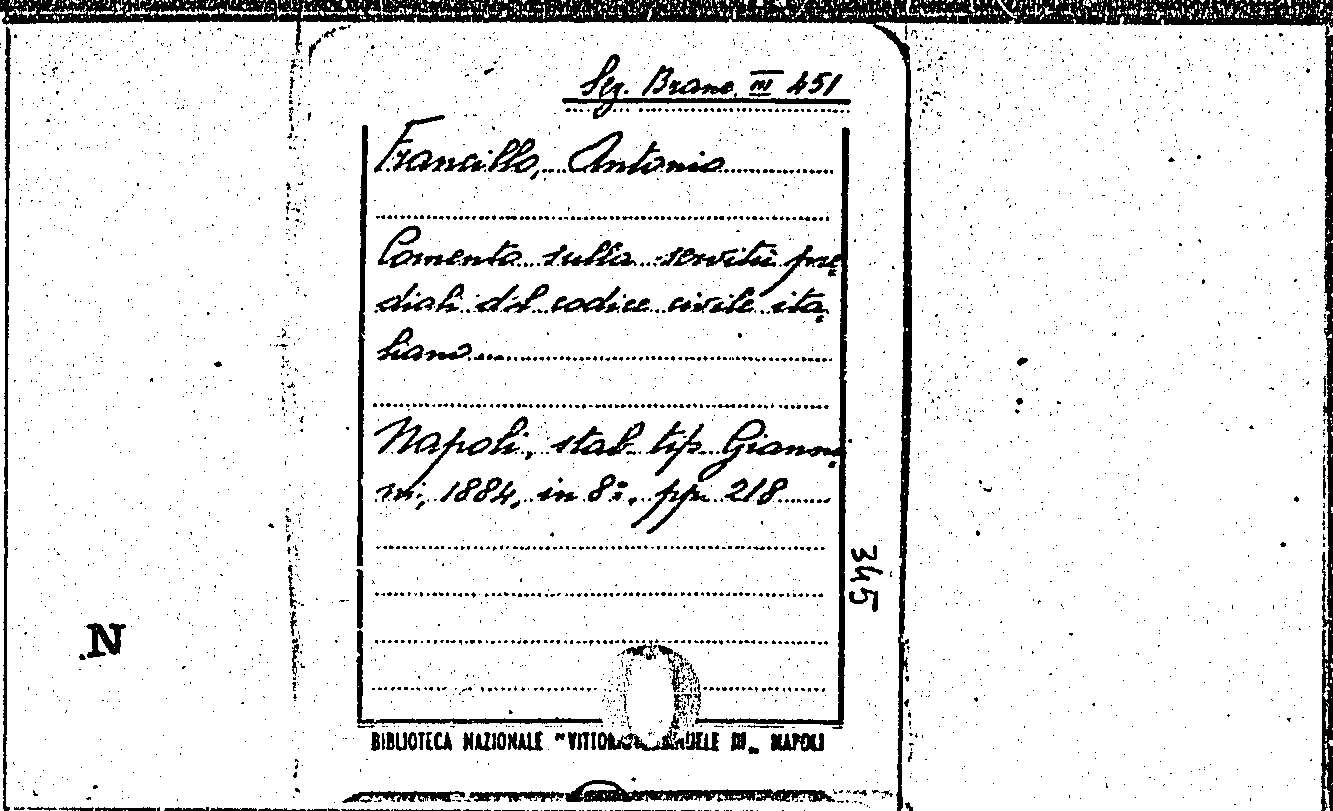 Sez. Branc. III 451
Francillo, Antonio
Comento sulla servitù pre=
diali del codice civile ita=
liano...
Napoli, stab. tip. Gianni=
ni, 1884, in 8º. pp. 218
345
N
BIBLIOTECA NAZIONALE "VITTORIO EMANUELE III„ NAPOLI